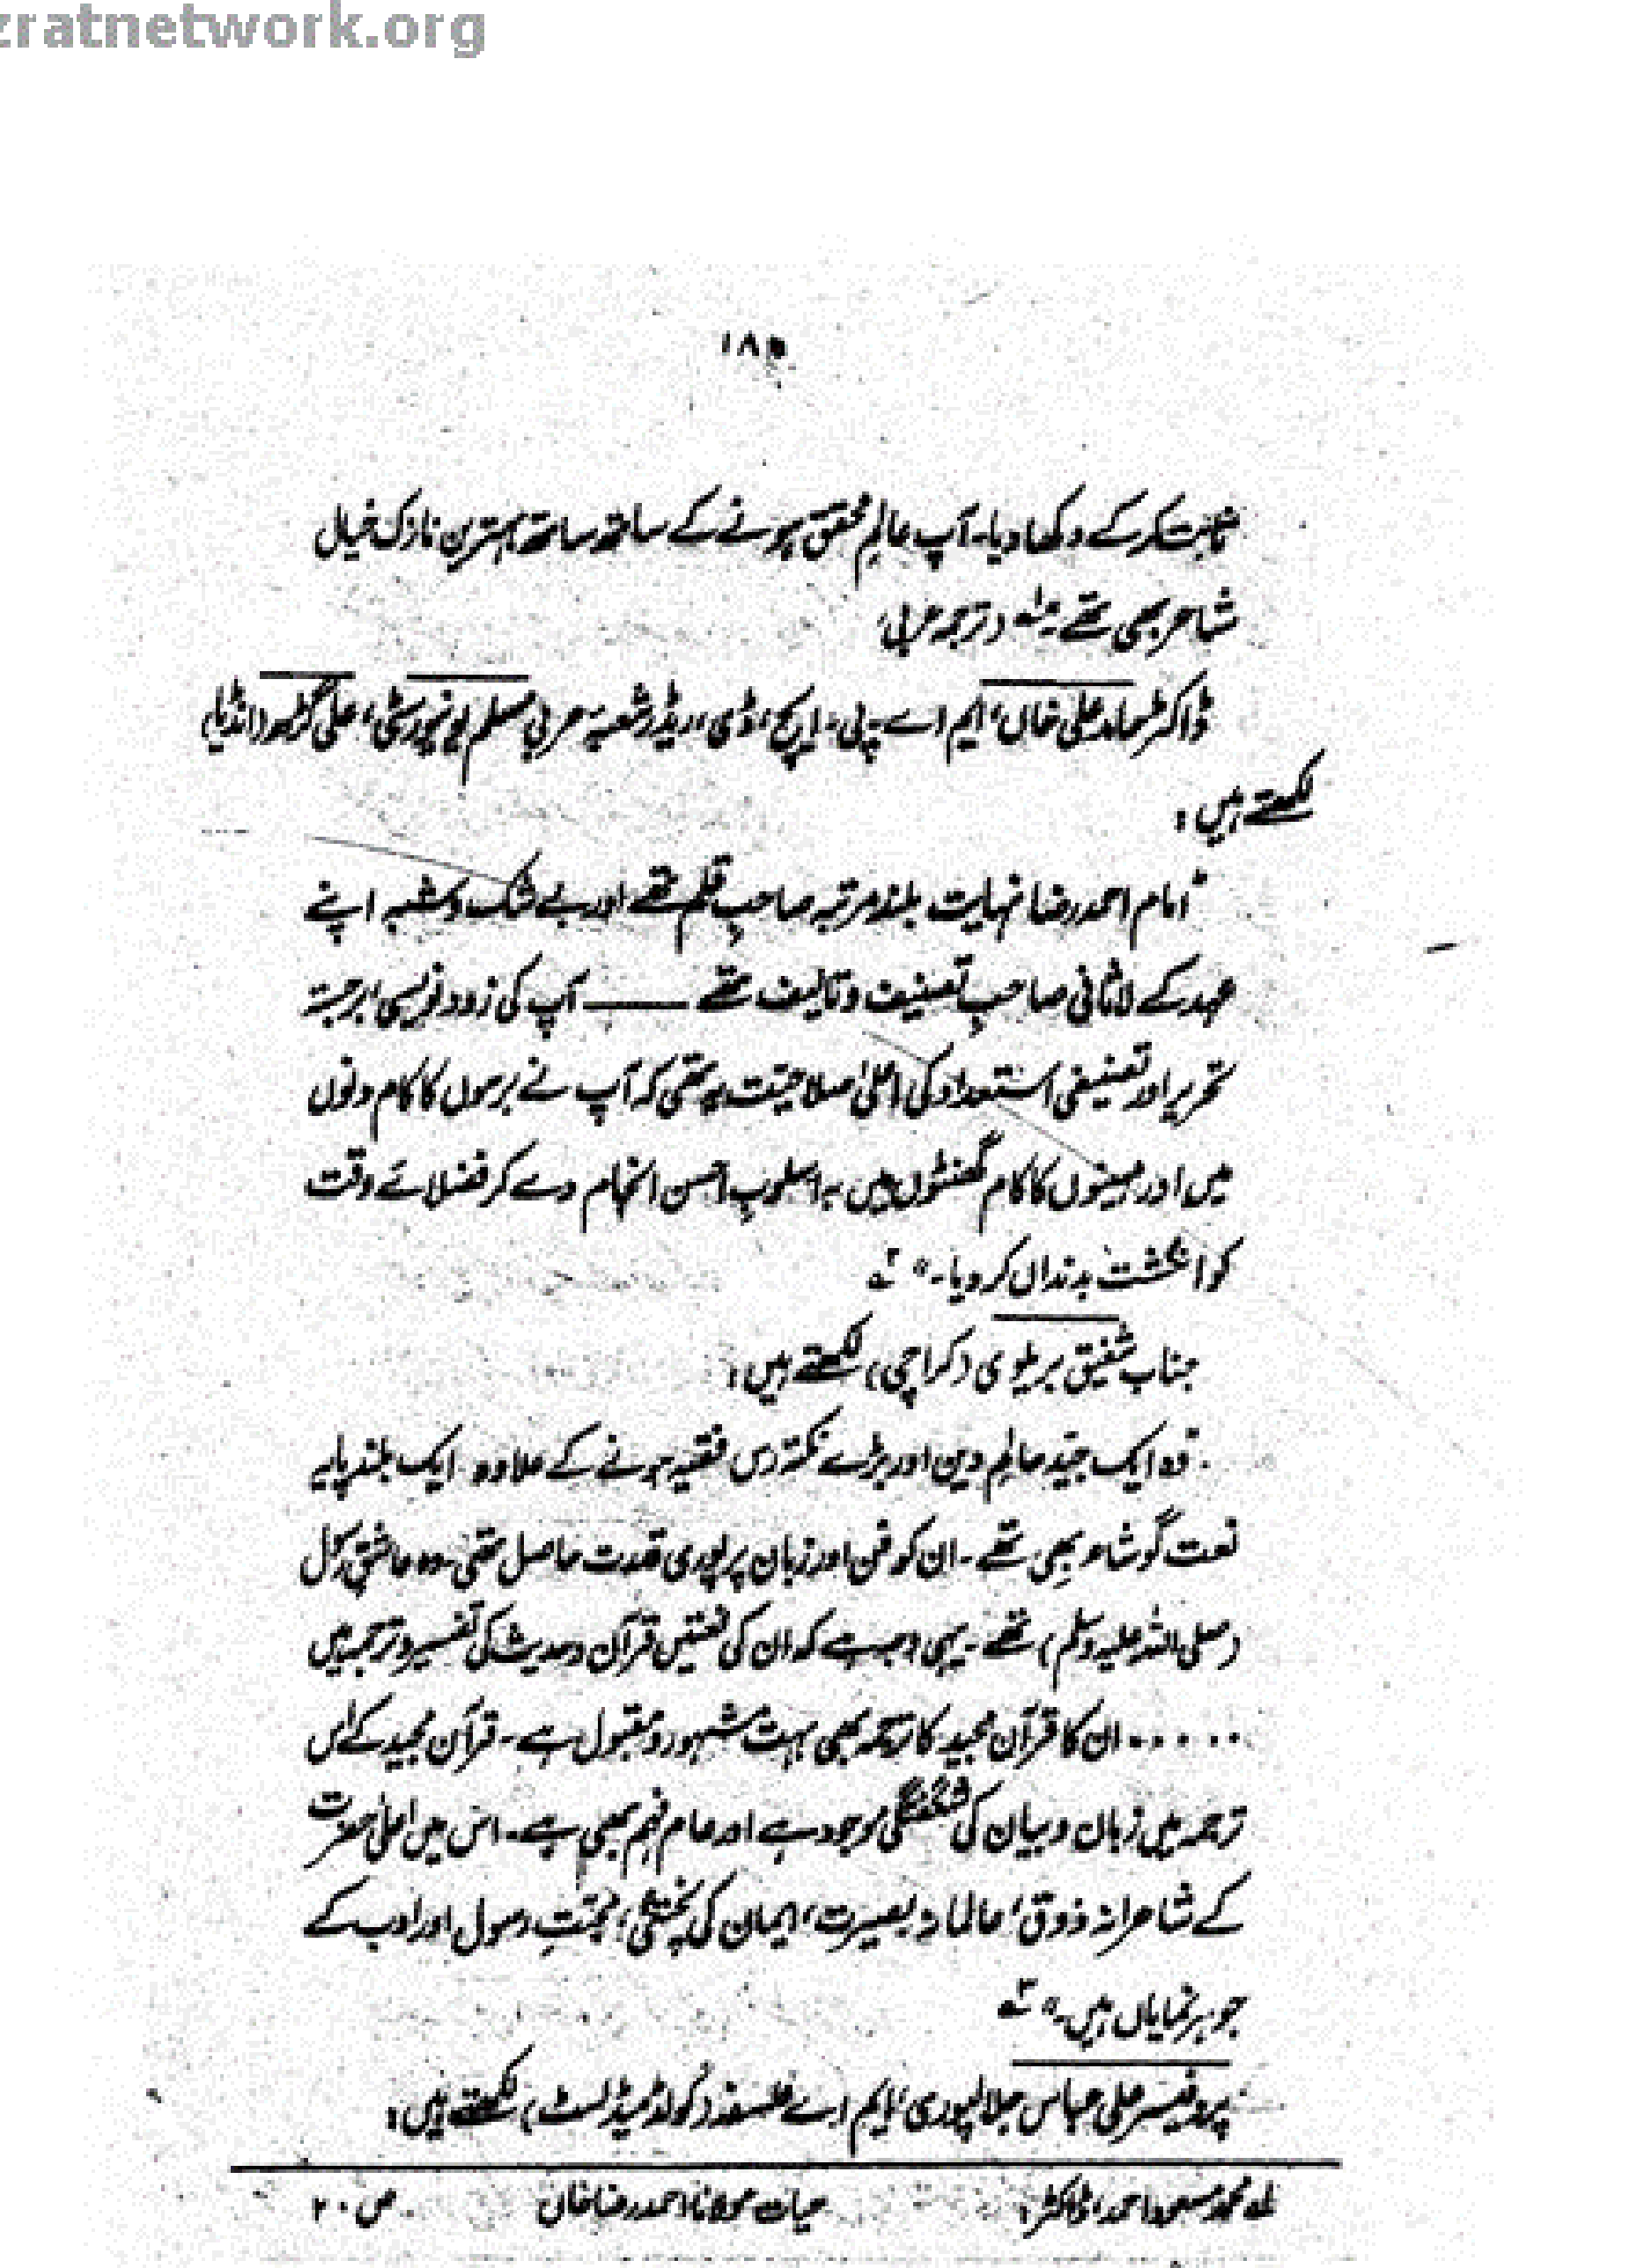 zratnetwork.org
ثابت کر کے دکھا دیا۔ آپ عالمِ محقق ہونے کے ساتھ ساتھ بہترین نازک خیال
شاعر بھی تھے۔ (ترجمہ عربی)
ڈاکٹر حامد علی خاں، ایم اے، پی، ایچ، ڈی، ریڈر شعبۂ عربی مسلم یونیورسٹی، علی گڑھ (انڈیا)
لکھتے ہیں:
"امام احمد رضا نہایت بلند مرتبہ صاحبِ قلم تھے اور بے شک و شبہ اپنے
عہد کے لاثانی صاحبِ تصنیف و تالیف تھے ــــــ آپ کی زود نویسی، برجستہ
تحریر اور تصنیفی استعداد کی اعلیٰ صلاحیت یہ تھی کہ آپ نے برسوں کا کام دنوں
میں اور مہینوں کا کام گھنٹوں میں بہ اسلوبِ احسن انجام دے کر فضلائے وقت
کو انگشت بدنداں کر دیا۔" ۲ے
جناب شفیق بریلوی (کراچی) لکھتے ہیں:
"وہ ایک جید عالمِ دین اور بڑے نکتہ رس فقیہ ہونے کے علاوہ ایک بلند پایہ
نعت گو شاعر بھی تھے۔ ان کو فن اور زبان پر پوری قدرت حاصل تھی۔ وہ عاشقِ رسول
(صلی اللہ علیہ وسلم) تھے۔ یہی وجہ ہے کہ ان کی نعتیں قرآن و حدیث کی تفسیر و ترجمہ ہیں
..... ان کا قرآن مجید کا ترجمہ بھی بہت مشہور و مقبول ہے۔ قرآن مجید کے اس
ترجمہ میں زبان و بیان کی شگفتگی موجود ہے اور عام فہم بھی ہے۔ اس میں اعلیٰ حضرت
کے شاعرانہ ذوق، عالمانہ بصیرت، ایمان کی پختگی، محبتِ رسول اور ادب کے
جوہر نمایاں ہیں۔" ۳ے
پروفیسر علی عباس جلالپوری، ایم اے فلسفہ (گولڈ میڈلسٹ) لکھتے ہیں:
۱ے محمد مسعود احمد، ڈاکٹر: حیات مولانا احمد رضا خاں ص ۲۰